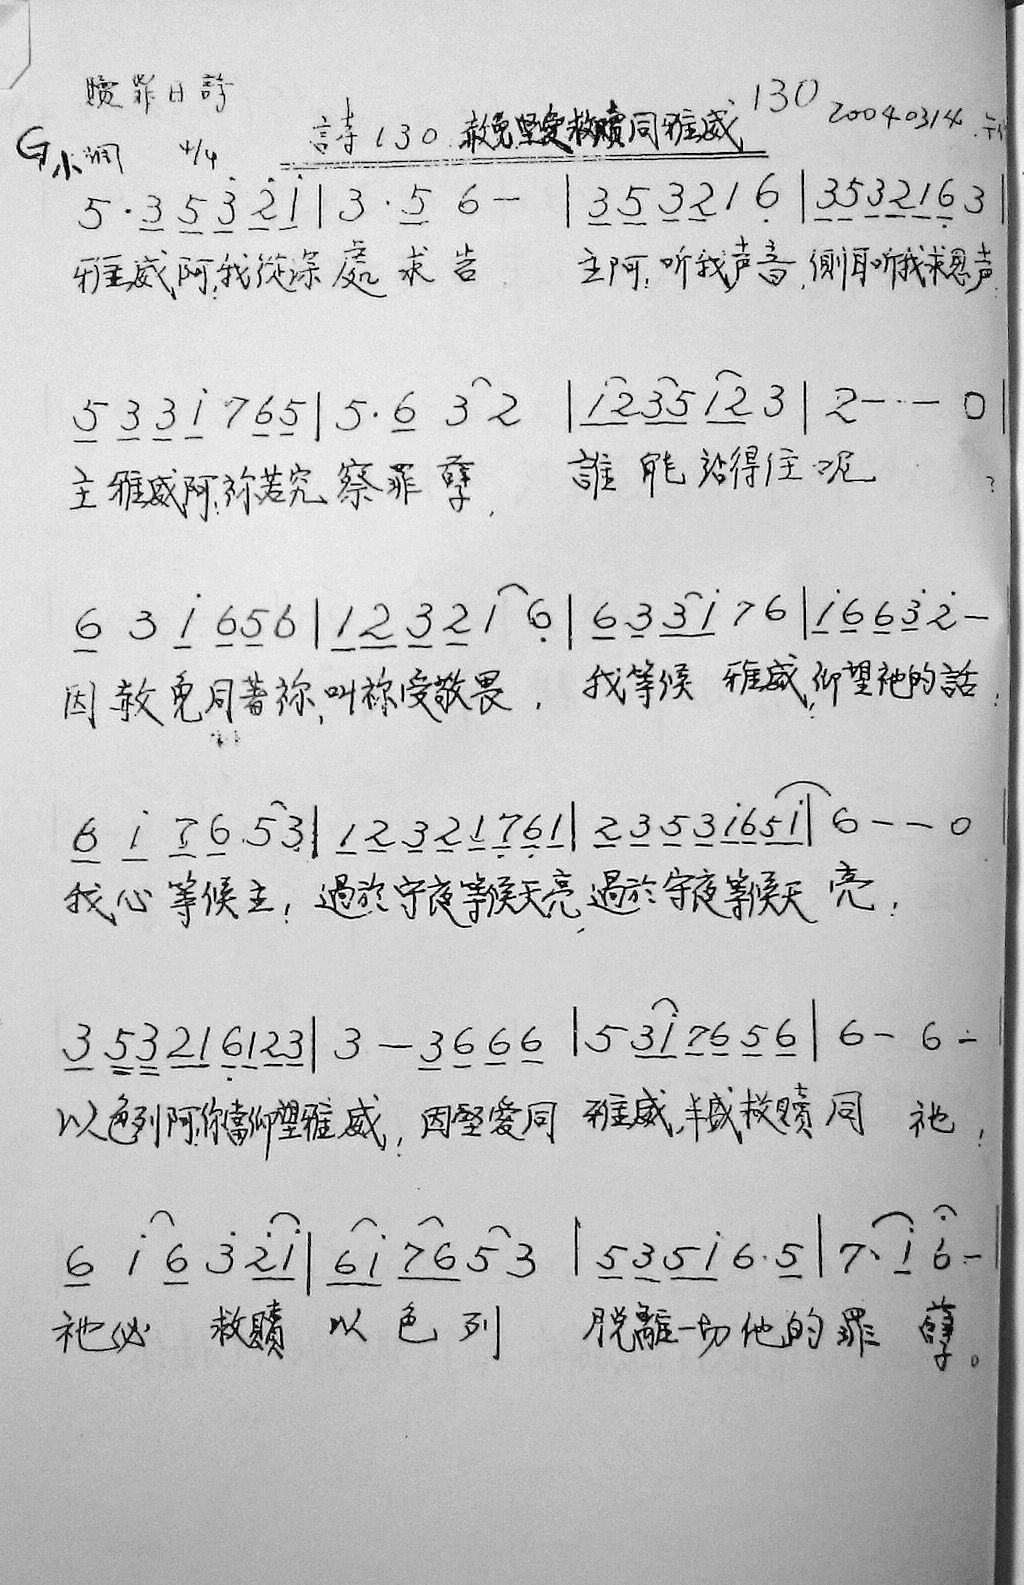 贖罪日詩
詩130.赦免堅愛救贖同雅威 130 20040314
G小调 4/4
5·3 5 3̇ 2̇ 1̇ | 3·5 6 - | 3 5 3 2 1 6̣ | 3 5 3 2 1 6̣ 3 |
雅威阿,我從深處求告 主阿,听我声音,側耳听我求恩声.
5 3 3 1̇ 7 6 5 | 5·6 3 2 | 1 2 3 5 1 2 3 | 2 - - - 0 |
主雅威阿,祢若究察罪孽, 誰能站得住呢?
6 3 1̇ 6 5 6 | 1 2 3 2 1 6̣ | 6 3 3 1̇ 7 6 | 1̇ 6 6 3̇ 2̇ -
因赦免同著祢,叫祢受敬畏. 我等候雅威,仰望祂的話.
6 1̇ 7 6 5 3 | 1 2 3 2 1 7̣ 6̣ 1 | 2 3 5 3 1̇ 6 5 1̇ | 6 - - 0
我心等候主, 過於守夜等候天亮,過於守夜等候天亮.
3 5 3 2 1 6̣ 1 2 3 | 3 - 3 6 6 6 | 5 3 1̇ 7 6 5 6 | 6 - 6 -
以色列阿,你當仰望雅威, 因堅愛同雅威,丰盛救贖同祂,
6 1̇ 6 3̇ 2̇ 1̇ | 6 1̇ 7 6 5 3 | 5 3 5 1̇ 6·5 | 7· 1̇ 6 -
祂必救贖以色列 脱離一切他的罪孽。